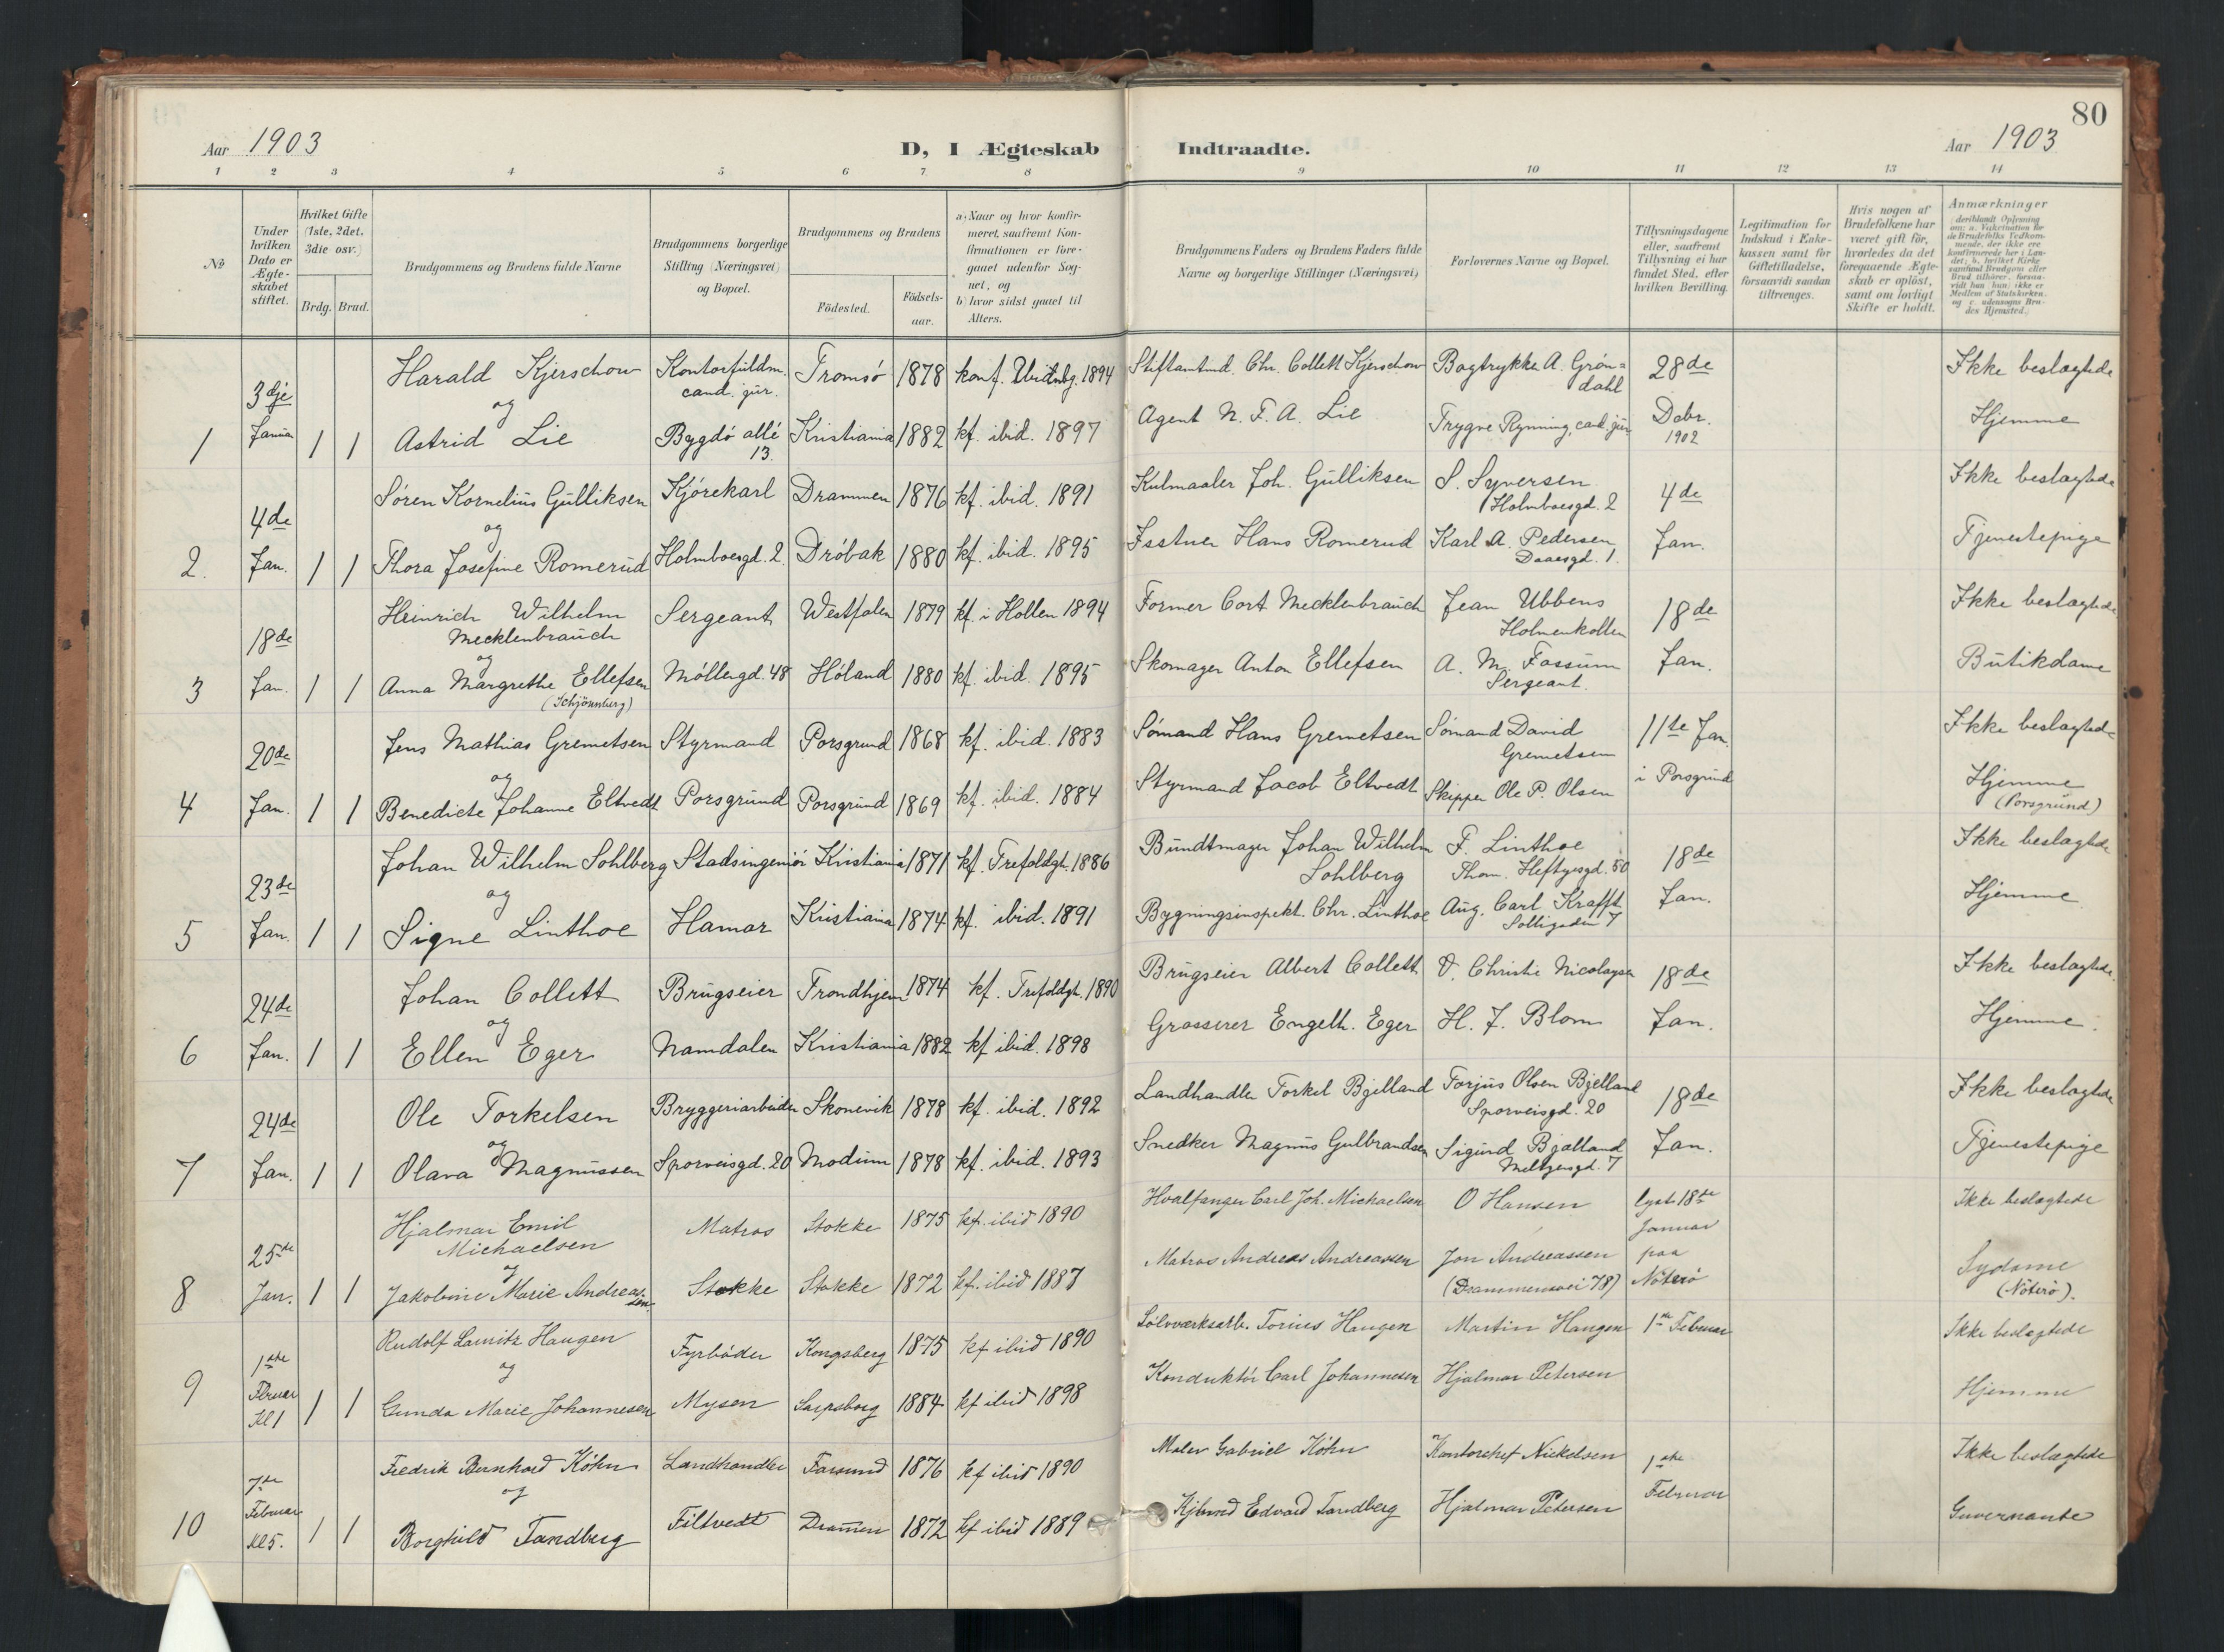 80
Aar 1903
D, I Ægteskab Indtraadte.
Aar 1903
1 2 3 4 5 6 7 8 9 10 11 12 13 14
№
Under hvilken Dato er Ægte-skabet stiftet.
Hvilket Gifte (1ste, 2det. 3die osv.)
Brdg. Brud.
Brudgommens og Brudens fulde Navne
Brudgommens borgerlige Stilling (Næringsvei) og Bopæl.
Brudgommens og Brudens
Födested.
Födsels-aar.
a) Naar og hvor konfir-meret, saafremt Kon-firmationen er fore-gaaet udenfor Sog-net, og
b) hvor sidst gaaet til Alters.
Brudgommens Faders og Brudens Faders fulde Navne og borgerlige Stillinger (Næringsvei)
Forlovernes Navne og Bopæl.
Tillysningsdagene eller, saafremt Tillysning ei har fundet Sted, efter hvilken Bevilling.
Legitimation for Indskud i Enke-kassen samt for Giftetilladelse, forsaavidt saadan tiltrænges.
Hvis nogen af Brudefolkene har været gift för, hvorledes da det foregaaende Ægte-skab er oplöst, samt om lovligt Skifte er holdt.
Anmærkninger
1 3dje Januar 1 1
Harald Kjerschow
og
Astrid Lie
Kontorfuldm. cand. jur.
Bygdó allé 13.
Tromsó 1878
Kristiania 1882 kf. ibid. 1897
Stiftamtmd. Chr. Collett Kjerschow
Agent N. F. A. Lie
Bogtrykke A. Grøn=dahl
Trygve Rynning, cand. jur
28de Debr. 1902
Ikke beslægtede
Hjemme
2. 4de Jan. 1 1
Søren Kornelius Gulliksen
og
Thora Josefine Romerud
Kjórekarl
Holmboesgd. 2.
Drammen 1876 kf. ibid. 1891
Dróbak 1880 kf. ibid. 1895
Kulmaaler Joh. Gulliksen
Hans Romerud
S. Syversen
Holmboesgd. 2
Karl A. Pedersen
Daaesgd. 1.
4de Jan.
Ikke beslægtede
Tjenestepige
3 18de Jan. 1 1
Heinrich Wilhelm
Mecklenbrauch
og
Anna Margrethe Ellefsen
(Schjónnberg)
Sergeant
Móllergd. 48
Westfalen 1879 kf. i Hollen 1894
Hóland 1880 kf. ibid. 1895
Former Cort Mecklenbrauch
Skomager Anton Ellefsen
Jean Ubbens
Holmenkollen
A. M. Fossum
Sergeant.
18de Jan.
Ikke beslægtede
Butikdame
4 20de Jan. 1 1
Jens Mathias Gremetsen
og
Benedicte Johanne Eltvedt
Styrmand
Porsgrund
Porsgrund 1868 kf. ibid. 1883
Porsgrund 1869 kf. ibid. 1884
Sómand Hans Gremetsen
Styrmand Jacob Eltvedt
Sómand David
Gremetsen
Skipper Ole P. Olsen
11te Jan.
i Porsgrund
Ikke beslægtede
Hjemme
(Porsgrund)
5 23de Jan. 1 1
Johan Wilhelm Sohlberg
og
Signe Linthoe
Stadsingeniór
Hamar
Kristiania 1871 kf. Trefoldgh. 1886
Kristiania 1874 kf. ibid. 1891
Bundtmager Johan Wilhelm
Sohlberg
Bygningsinspekt. Chr. Linthoe
F. Linthoe
Thom. Heftyesgd. 50
Aug. Carl Krafft
Solligaden 7
18de Jan.
Ikke beslægtede
Hjemme
6 24de Jan. 1 1
Johan Collett
og
Ellen Eger
Brugseier
Namdalen
Trondhjem 1874 kf. Trefoldgh. 1890
Kristiania 1882 kf ibid. 1898
Brugseier Albert Collett
Grosserer Engelh. Eger
V. Christie Nicolaysen
H. J. Blom
18de Jan.
Ikke beslægtede.
Hjemme.
7 24de Jan. 1 1
Ole Torkelsen
og
Olava Magnussen
Bryggeriarbeider
Sporveisgd. 20
Skonevik 1878 kf. ibid. 1892
Modum 1878 kf. ibid. 1893
Landhandler Torkel Bjelland
Snedker Magnus Gulbrandsen
Torjus Olsen Bjelland
Sporveisgd. 20
Sigurd Bjælland
Meltzersgd. 7
18de Jan.
Ikke beslægtede
Tjenestepige
8 25de Jan. 1 1
Hjalmar Emil
Michaelsen
og
Jakobine Marie Andreassen.
Matros
Stokke
Stokke 1875 kf. ibid 1890
Stokke 1872 kf. ibid 1887
Hvalfanger Carl Joh. Michaelsen
Matros Andreas Andreassen
O Hansen
Jon Andreassen
(Drammensvei 78)
lyst 18de
Januar
paa
Nóteró
Ikke beslægtede
Sydame
(Nóteró).
9 1ste Februar Kl 1 1 1
Rudolf Lauritz Haugen
og
Gunda Marie Johannesen
Fyrbóder
Mysen
Kongsberg 1875 kf ibid 1890
Sarpsborg 1884 kf ibid 1898
Sólvværksarb. Torius Haugen
Konduktór Carl Johannesen
Martin Haugen
Hjalmar Petersen
1ste Februar
Ikke beslægtede
Hjemme
10 7de Februar Kl 5. 1 1
Fredrik Bernhard Kóhn
og
Borghild Tandberg
Landhandler
Filtvedt
Farsund 1876 kf ibid 1890
Drammen 1872 kf ibid 1889
Maler Gabriel Kóhn
Kjbmd Edvard Tandberg
Kontorchef Nickelsen
Hjalmar Petersen
1ste
Februar
Ikke beslægtede
Guvernante